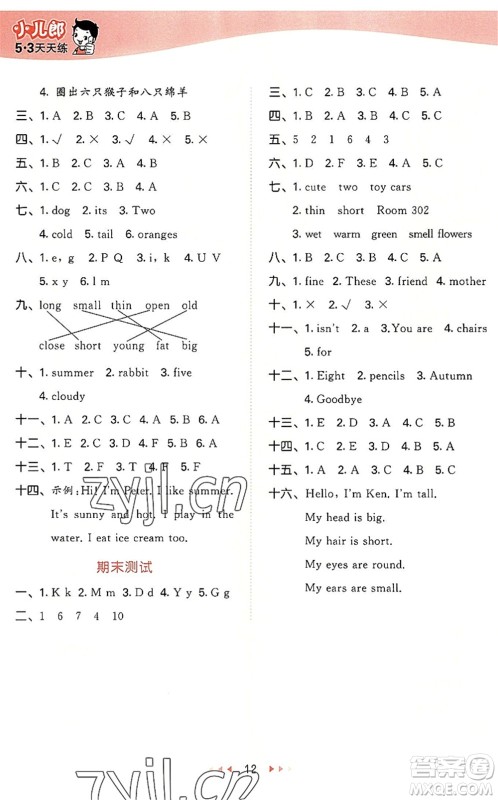 小儿郎
5·3天天练
4. 圈出六只猴子和八只绵羊
三、1. A 2. B 3. C 4. A 5. B
四、1. √ 2. × 3. × 4. √ 5. ×
五、1. B 2. C 3. A 4. B 5. A
六、1. C 2. A 3. D 4. B
七、1. dog 2. its 3. Two
4. cold 5. tail 6. oranges
八、1. e, g 2. P Q 3. i 4. U V
5. x y 6. l m
九、long small thin open old
close short young fat big
十、1. summer 2. rabbit 3. five
4. cloudy
十一、1. A 2. C 3. C 4. B 5. A
十二、1. E 2. C 3. D 4. F 5. B
十三、1. T 2. F 3. F 4. F 5. T
十四、示例: Hi! I'm Peter. I like summer.
It's sunny and hot. I play in the
water. I eat ice cream too.
期末测试
一、1. K k 2. M m 3. D d 4. Y y 5. G g
二、1 6 7 4 10
三、1. C 2. C 3. B 4. A 5. C
四、1. B 2. A 3. A 4. B 5. A
五、5 2 1 6 4 3
六、1. D 2. F 3. E 4. A 5. B
七、1. cute two toy cars
2. thin short Room 302
3. wet warm green smell flowers
八、1. B 2. C 3. A 4. B 5. C
九、1. fine 2. These 3. friend 4. mother
十、1. × 2. √ 3. ×
十一、1. isn't 2. a 3. You are 4. chairs
5. for
十二、1. Eight 2. pencils 3. Autumn
4. Goodbye
十三、1. E 2. D 3. A 4. B 5. C
十四、1. C 2. E 3. D 4. B 5. A
十五、1. A 2. C 3. C 4. B 5. C
十六、Hello, I'm Ken. I'm tall.
My head is big.
My hair is short.
My eyes are round.
My ears are small.
zyjl.cn
12
zyjl.cn
答案圈
MXQE.COM